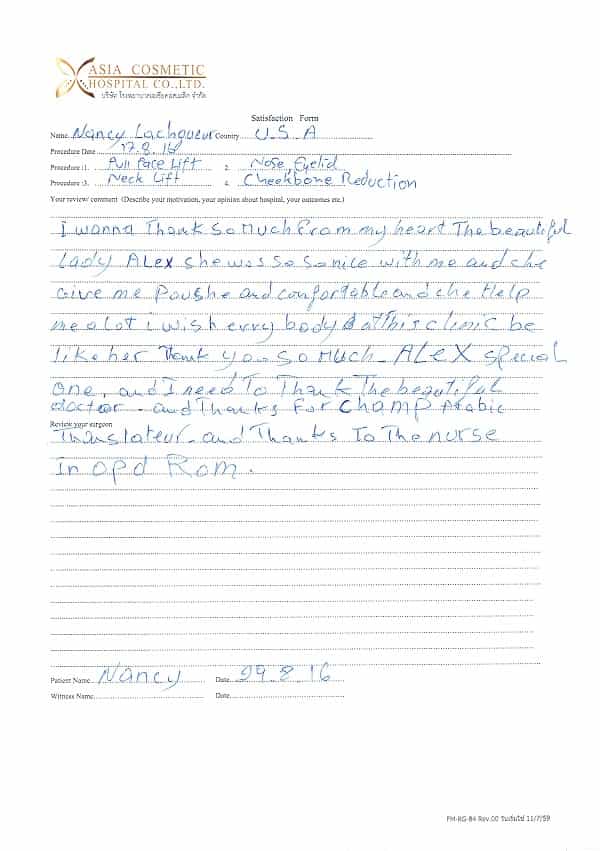 ASIA COSMETIC
HOSPITAL CO.,LTD.
บริษัท โรงพยาบาลเอเชียคอสเมติค จำกัด
Satisfaction Form
Name Nancy Lachgueur Country U.S.A
Procedure Date 17.8.16
Procedure :1. Full Face Lift 2. Nose, Eyelid
Procedure :3. Neck Lift 4. Cheekbone Reduction
Your review/ comment (Describe your motivation, your opinion about hospital, your outcomes etc.)
I wanna Thank so Much from my heart The beautiful
Lady ALEX she was so so nice with me and che
Give me Poushe and confortable and che Help
me a lot i wish errybody at this clinic be
like her Thank you so much - ALEX special
one, and I need To Thank The beautiful
doctor - and Thanks For Champ Arabic
Review your surgeon
Translateur - and Thanks To The nurse
In opd Rom.
Patient Name Nancy Date 29.8.16
Witness Name Date
FM-RG-84 Rev.00 วันเริ่มใช้ 11/7/59